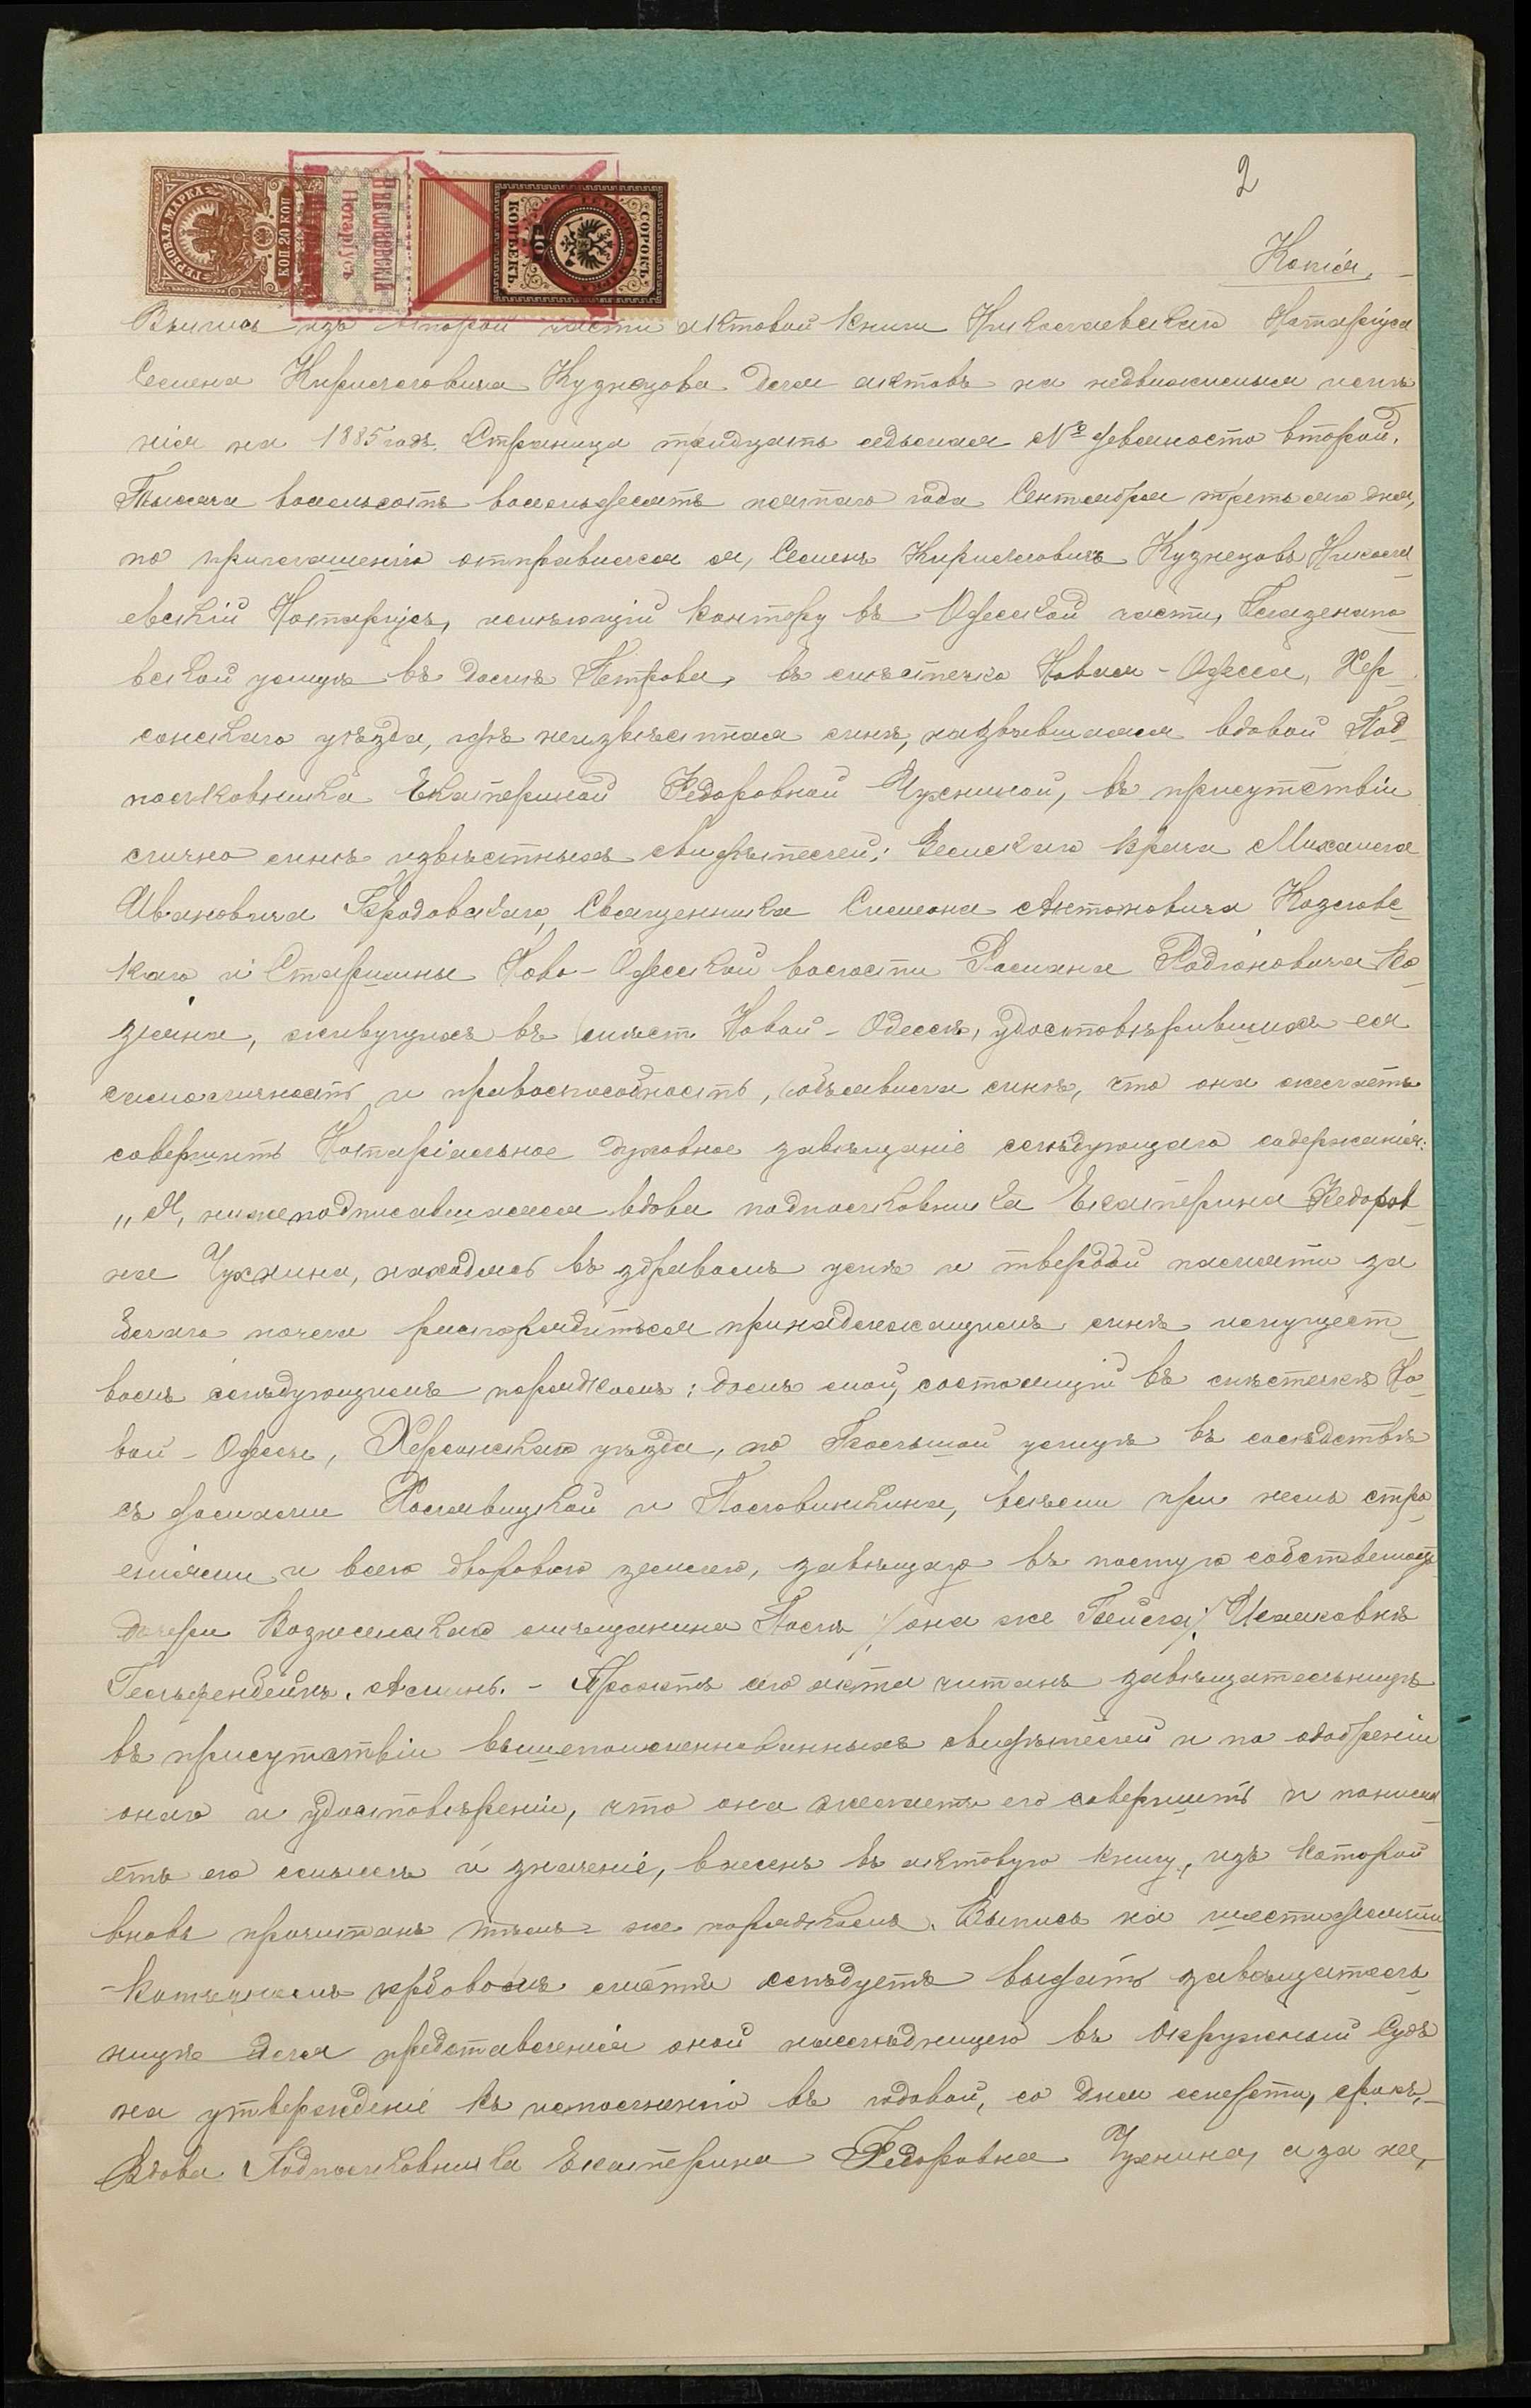 2
Копія.
ГЕРБОВАЯ МАРКА
КОП 20 КОП
Нотаріусъ
ГЕРБОВАЯ МАРКА
СОРОКЪ
40
КОПѢЕКЪ
Выпись изъ второй части актовой книги Николаевскаго Нотаріуса
Семена Кирилловича Кузнецова для актовъ на недвижимыя имѣ-
нія на 1885 годъ. Страница тридцать седьмая № девяносто второй.
Тысяча восемьсотъ восемьдесятъ пятаго года Сентября третьяго дня,
по приглашенію отправился я, Семенъ Кирилловичъ Кузнецовъ Никола-
евскій Нотаріусъ, имѣющій контору въ Одесской части, Глазенапо-
вской улицѣ въ домѣ Петрова, въ мѣстечко Новая-Одесса, Хер-
сонскаго уѣзда, гдѣ неизвѣстная мнѣ, назвавшаяся вдовой Под-
полковника Екатериной Федоровной Чухниной, въ присутствіи
лично мнѣ извѣстныхъ свидѣтелей: Земскаго врача Михаила
Ивановича Бродовскаго, Священника Симеона Антоновича Козловс-
каго и Старшины Ново-Одесской волости Романа Родіоновича Ко-
зіяна, живущихъ въ мѣст. Новой-Одессѣ, удостовѣрившихъ ея
самоличность и правоспособность, объявила мнѣ, что она желаетъ
совершить Нотаріальное духовное завѣщаніе слѣдующаго содержанія:
„Я, нижеподписавшаяся вдова подполковника Екатерина Федоров-
на Чухнина, находясь въ здравомъ умѣ и твердой памяти за
благо почла распорядиться принадлежащимъ мнѣ имущест-
вомъ слѣдующимъ порядкомъ: домъ мой, состоящій въ мѣстечкѣ Но-
вой-Одессѣ, Херсонскаго уѣзда, по Большой улицѣ въ сосѣдствѣ
съ домами и Половинкина, всѣми при немъ стро-
еніями и всею дворовою землею, завѣщаю въ полную собственность
дочери Вознесенскаго мѣщанина /она же Бейла/ Исааковнѣ
Аминь. - Проэктъ сего акта читанъ завѣщательницѣ
въ присутствіи вышепоименованныхъ свидѣтелей и по одобреніи
онаго и удостовѣреніи, что она желаетъ его совершить и понима-
етъ его смыслъ и значеніе, внесенъ въ актовую книгу, изъ которой
вновь прочитанъ тѣмъ-же порядкомъ. Выпись на шестидесяти
-копѣечномъ гербовомъ листѣ слѣдуетъ выдать завѣщатель-
ницѣ для представленія оной наслѣдницею въ Окружный Судъ
на утвержденіе къ исполненію въ годовой, со дня смерти, срокъ,-
Вдова Подполковника Екатерина Федоровна Чухнина, а за нее,-